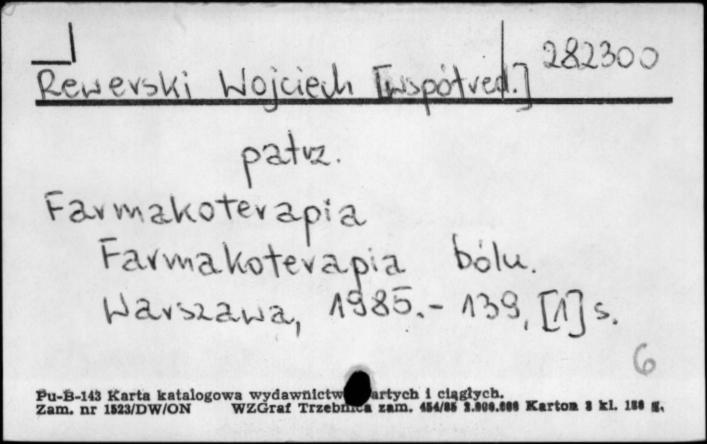 282300
Rewerski Wojciech [współred.]
patrz.
Farmakoterapia
Farmakoterapia bólu.
Warszawa, 1985.- 139, [1] s.
6
Pu-B-143 Karta katalogowa wydawnictw artych i ciągłych.
Zam. nr 1523/DW/ON WZGraf Trzebnica zam. 454/85 Karton 3 kl. g.